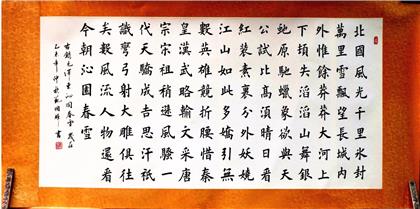 北國風光千里冰封
萬里雪飄望長城內
外惟餘莽莽大河上
下頓失滔滔山舞銀
蛇原馳蠟象欲與天
公試比高須晴日看
紅裝素裹分外妖嬈
江山如此多嬌引無
數英雄競折腰惜秦
皇漢武略輸文采唐
宗宋祖稍遜風騷一
代天驕成吉思汗祇
識彎弓射大雕俱往
矣數風流人物還看
今朝沁園春雪
右錄毛澤東沁園春雪歲在
乙未年仲秋書